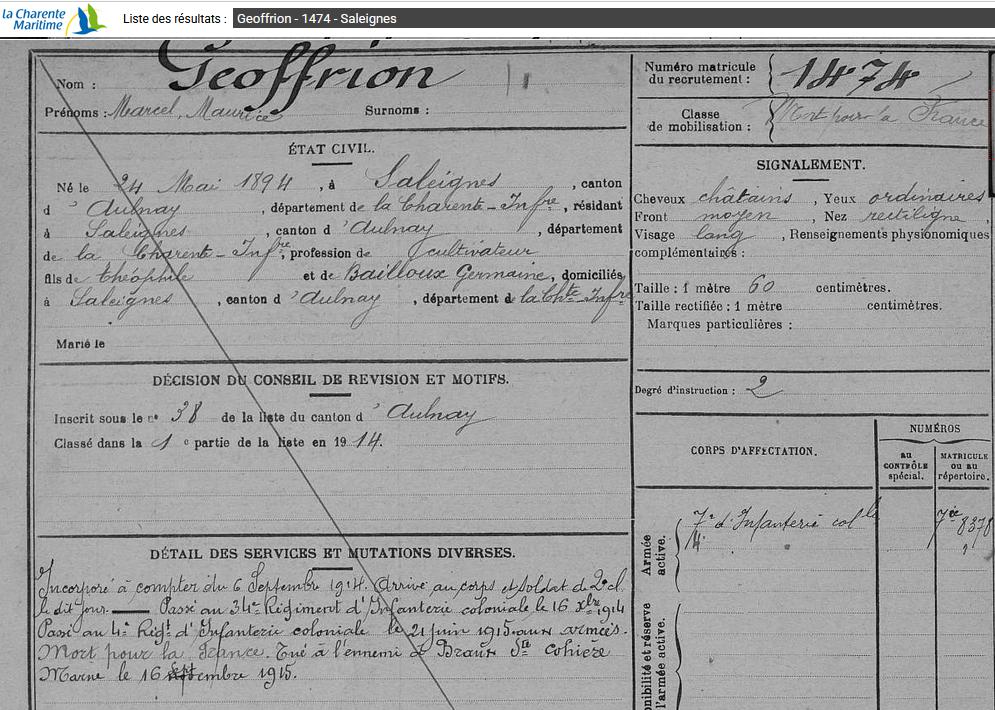 la Charente
Maritime
Liste des résultats : Geoffrion - 1474 - Saleignes
Nom : Geoffrion
Prénoms : Marcel, Maurice Surnoms :
ÉTAT CIVIL.
Né le 24 Mai 1894, à Saleignes, canton
d'Aulnay, département de la Charente-Infre, résidant
à Saleignes, canton d'Aulnay, département
de la Charente-Infre, profession de cultivateur
fils de théophile et de Bailloux Germaine, domiciliés
à Saleignes, canton d'Aulnay, département d la Chte Infre
Marié le
DÉCISION DU CONSEIL DE REVISION ET MOTIFS.
Inscrit sous le n° 38 de la liste du canton d'Aulnay
Classé dans la 1e partie de la liste en 1914.
DÉTAIL DES SERVICES ET MUTATIONS DIVERSES.
Incorporé à compter du 6 Septembre 1914. Arrivé au corps et soldat de 2e cl
le dit jour. Passé au 34e Régiment d'Infanterie coloniale le 16 Xbre 1914
Passé au 4e Régt d'Infanterie coloniale le 21 juin 1915 aux armées.
Mort pour la France. Tué à l'ennemi à Braux Ste Cohière
Marne le 16 Septembre 1915.
Numéro matricule
du recrutement : 1474
Classe
de mobilisation : Mort pour la France
SIGNALEMENT.
Cheveux châtains, Yeux ordinaires
Front moyen, Nez rectiligne,
Visage long, Renseignements physionomiques
complémentaires :
Taille : 1 mètre 60 centimètres.
Taille rectifiée : 1 mètre centimètres.
Marques particulières :
Degré d'instruction : 2
CORPS D'AFFECTATION.
NUMÉROS
au
CONTRÔLE
spécial.
MATRICULE
ou au
répertoire.
Armée
active.
7e d'Infanterie colle
7ie 8378
4e
onibilité et réserve
l'armée active.